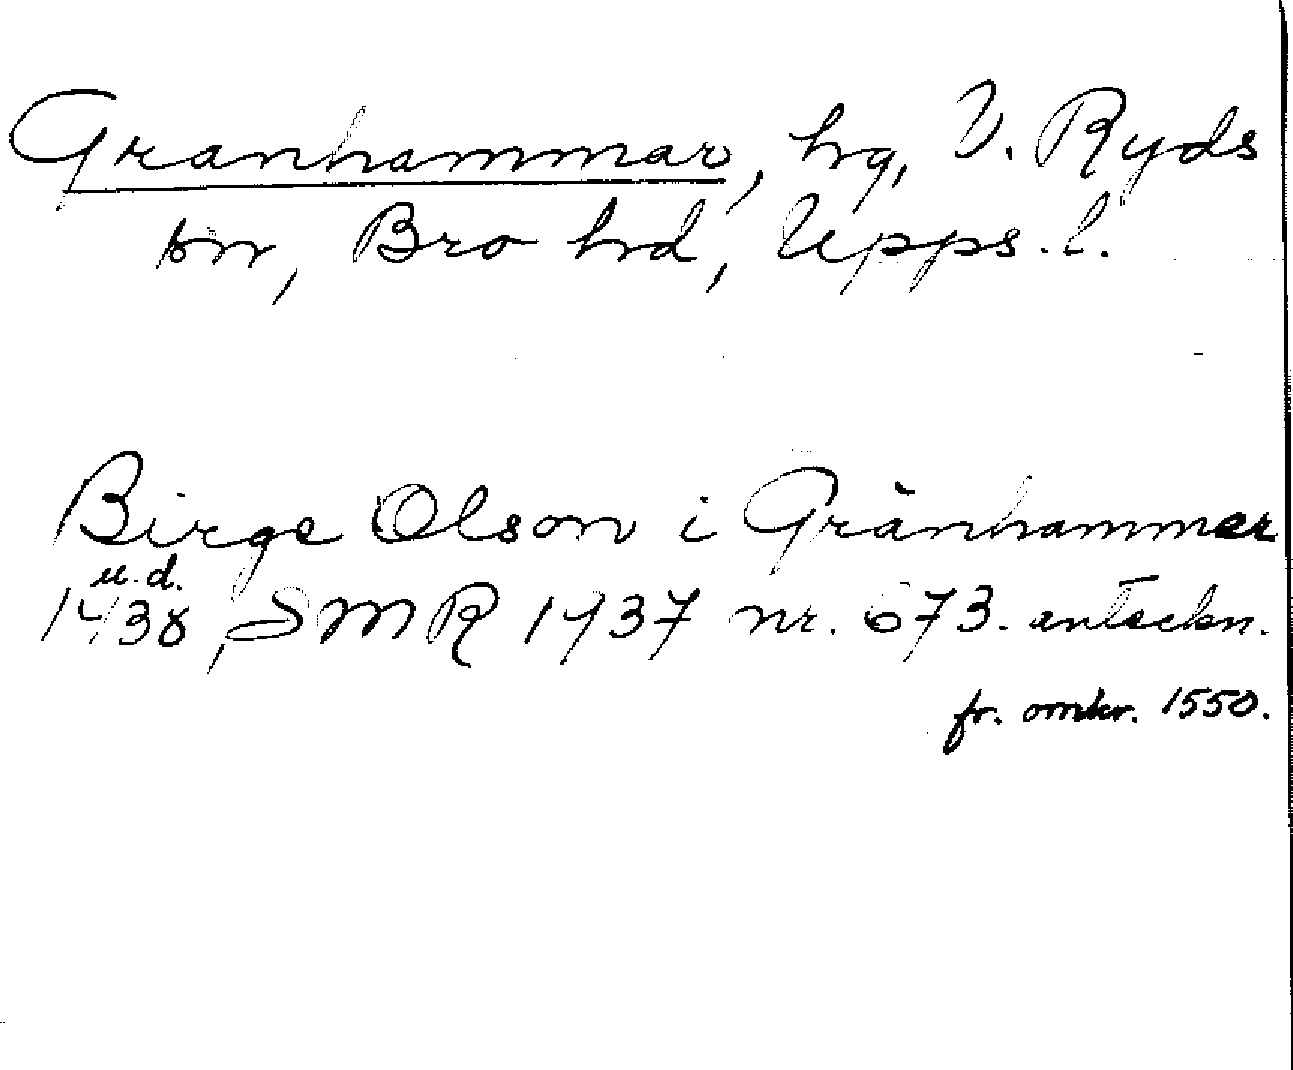 Granhammar, hg, V. Ryds
sn, Bro hd, Upps. l.
Birge Olson i Grànhammer
u. d.
1438, SMR 1437 nr. 673. anteckn.
fr. omkr. 1550.